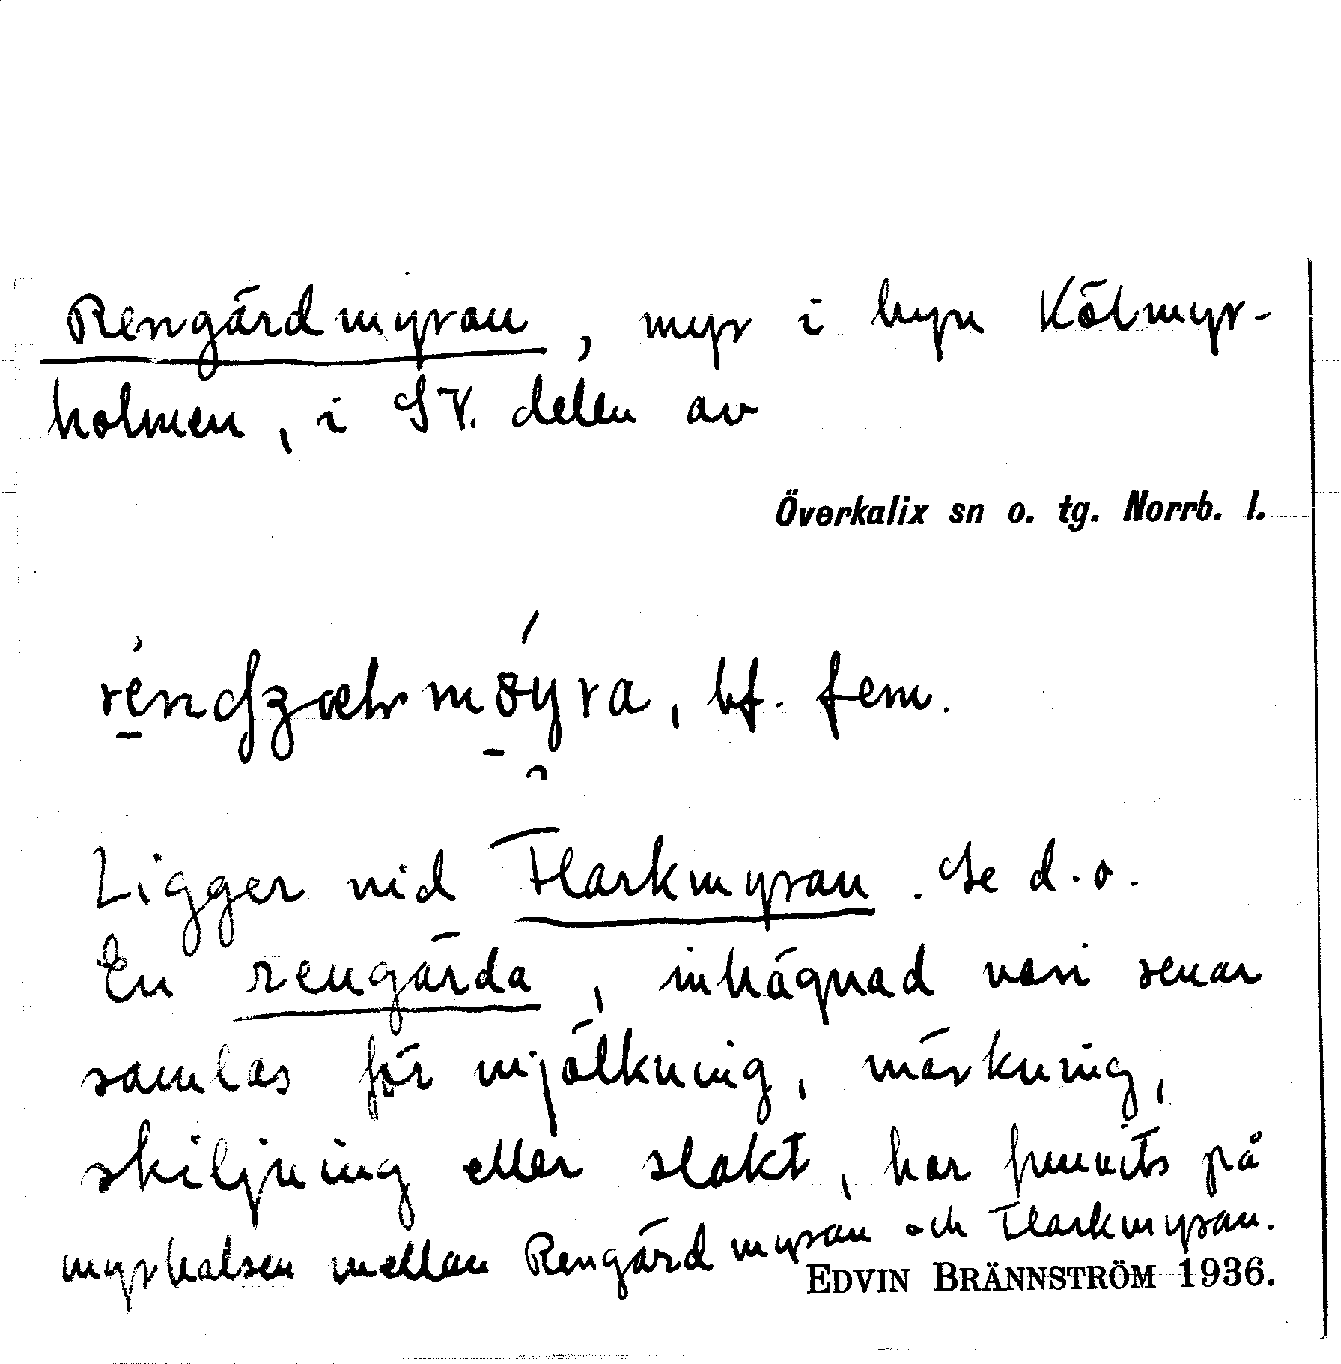 Rengärdmyran, myr i byn Kölmyr-
holmen, i SV. delen av
Överkalix sn o. tg. Norrb. l.
bf. fem.
Ligger vid Flarkmyran. Se d.o.
En rengärda, inhägnad vari renar
samlas för mjölkning, märkning,
skiljning eller slakt, har funnits på
myrhalsen mellan Rengärdmyran och Flarkmyran.
EDVIN BRÄNNSTRÖM 1936.